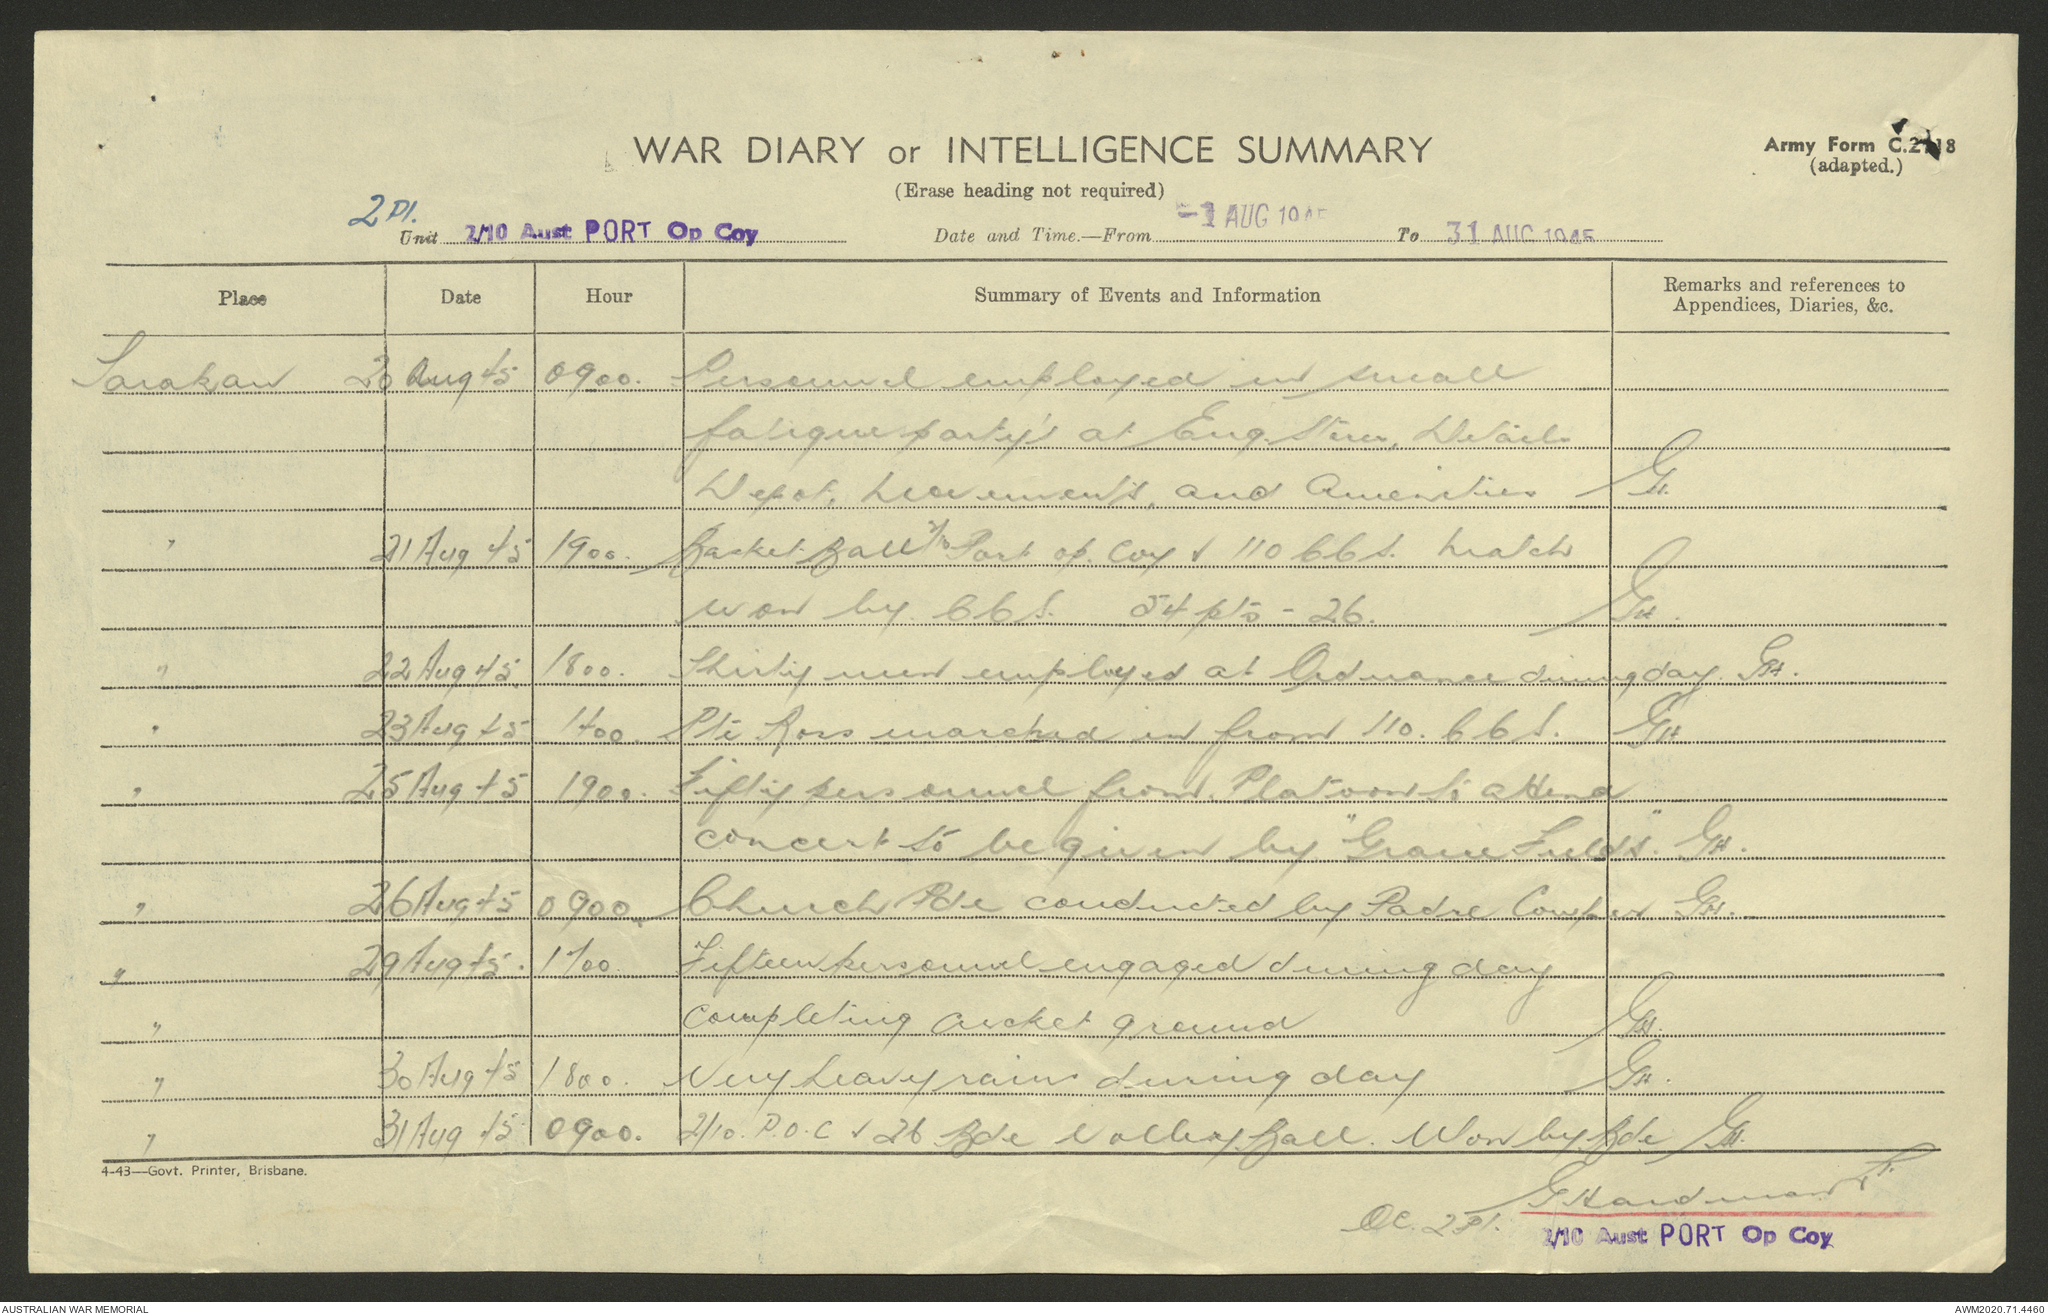 WAR DIARY or INTELLIGENCE SUMMARY
Army Form C.2118
(adapted.)
(Erase heading not required)
2 Pl.
Unit 2/10 Aust PORT Op Coy
Date and Time.—From -1 AUG 1945 To 31 AUG 1945
Place Date Hour Summary of Events and Information Remarks and references to
Appendices, Diaries, &c.
Tarakan 20 Aug 45 0900. Personnel employed in small
fatigue party's at Eng. Stores, Details
Depot, Movements, and Amenities GH.
" 21 Aug 45 1900. Basket Ball 2/10 Port op. Coy v 110 CCS. Match
won by CCS. 54 pts - 26. GH.
" 22 Aug 45. 1800. Thirty men employed at Ordnance during day. GH.
" 23 Aug 45 1400. Pte Ross marched in from 110. CCS. GH
" 25 Aug 45 1900. Fifty personnel from Platoon to attend
concert to be given by "Gracie Fields". GH.
" 26 Aug 45 0900. Church Pde conducted by Padre GH.
" 29 Aug 45. 1700. Fifteen personnel engaged during day
" completing cricket ground GH.
" 30 Aug 45 1800. Very heavy rain during day GH.
" 31 Aug 45 0900. 2/10. P.O.C v 26 Bde Volley Ball. Won by Bde GH.
4-43—Govt. Printer, Brisbane.
GHardman Lt.
OC. 2 Pl.
2/10 Aust PORT Op Coy
AUSTRALIAN WAR MEMORIAL
AWM2020.71.4460